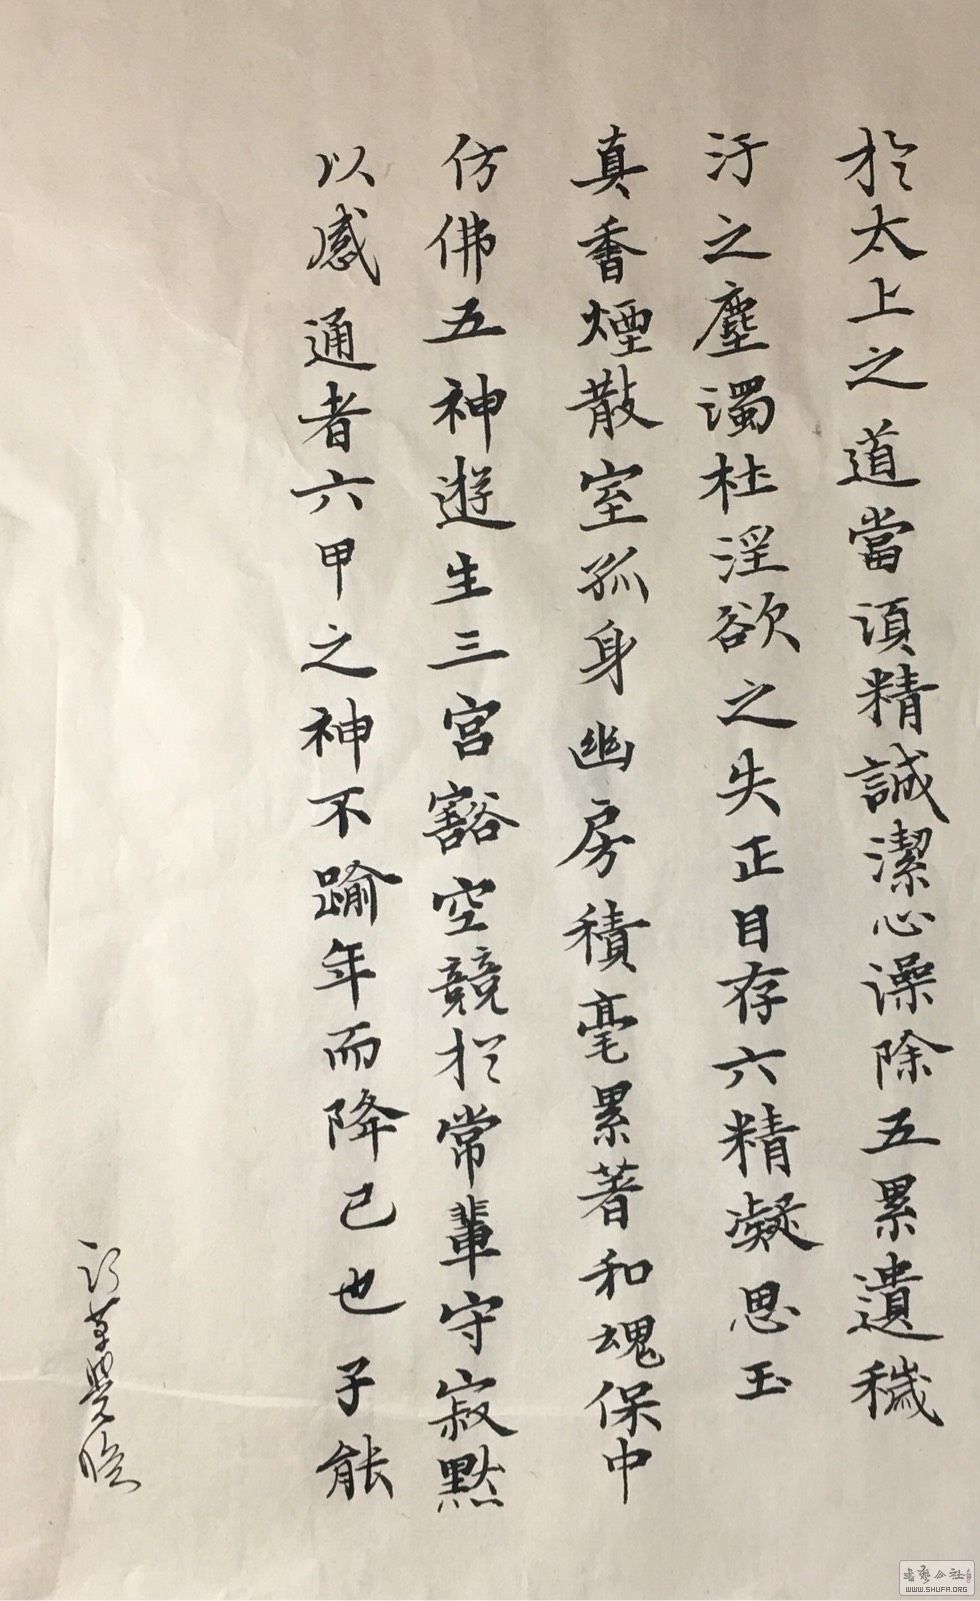 於太上之道當須精誠潔心澡除五累遺穢
汙之塵濁杜淫欲之失正目存六精凝思玉
真香煙散室孤身幽房積毫累著和魂保中
仿佛五神遊生三宮豁空競於常輩守寂默
以感通者六甲之神不踰年而降已也子能
臨
書藝公社
WWW.SHUFA.ORG